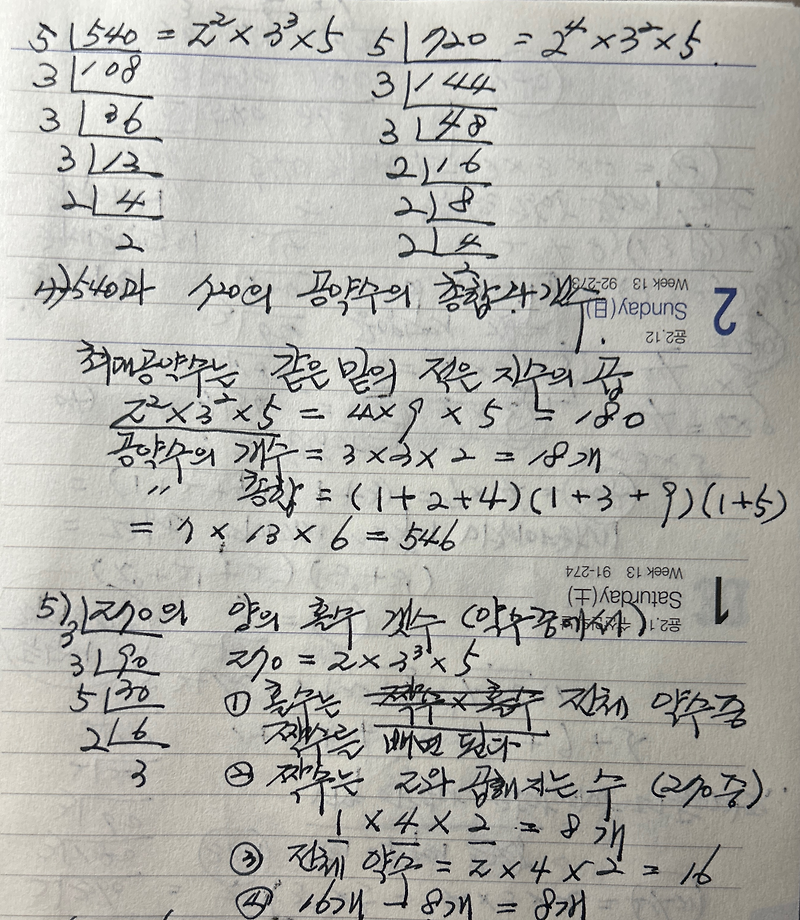 5 540 = 2² × 3³ × 5   5 720 = 2⁴ × 3² × 5.
3 108   3 144
3 36   3 48
3 13   2 16
2 4   2 8
2   2 4
2
4) 540과 720의 공약수의 총합과 개수.
최대공약수는 같은 밑의 적은 지수의 곱
2² × 3² × 5 = 4 × 9 × 5 = 180
공약수의 개수 = 3 × 3 × 2 = 18개
〃 총합 = (1+2+4)(1+3+9)(1+5)
= 7 × 13 × 6 = 546
2
Sunday(日)
Week 13 92-273
음2.12
5) 3 270의 양의 홀수 갯수 (약수중에서)
3 90   270 = 2 × 3³ × 5
5 30   ① 홀수는 짝수 × 홀수 전체 약수중
2 6   짝수를 빼면 된다
3   ② 짝수는 2와 곱해지는 수 (270중)
1 × 4 × 2 = 8개
③ 전체 약수 = 2 × 4 × 2 = 16
④ 16개 - 8개 = 8개
1
Saturday(土)
Week 13 91-274
음2.11